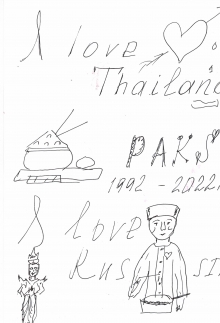 I love
Thailand
PAKS
1992 - 2022
I love
Russ si